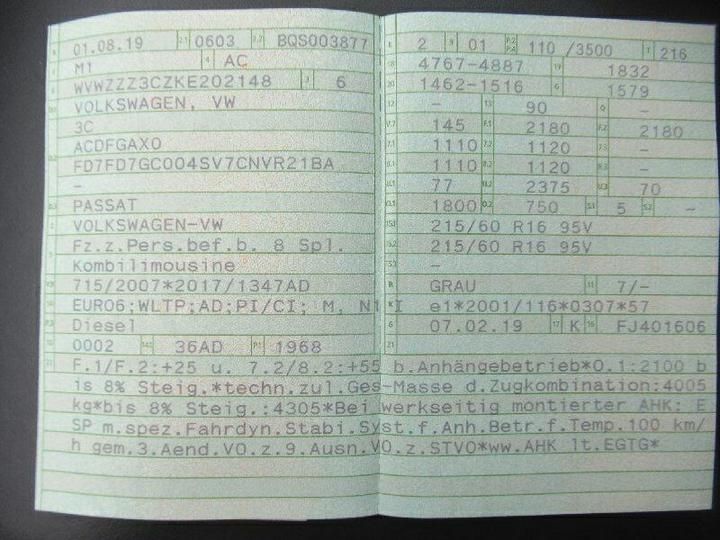 01.08.19 0603 BQS003877
M1 AC
WVWZZZ3CZKE202148 6
VOLKSWAGEN, VW
3C
ACDFGAX0
FD7FD7GC004SV7CNVR21BA
-
PASSAT
VOLKSWAGEN-VW
Fz.z.Pers.bef.b. 8 Spl.
Kombilimousine
715/2007*2017/1347AD
EURO6;WLTP;AD;PI/CI; M, N1 I
Diesel
0002 36AD 1968
2 01 110 /3500 216
4767-4887 1832
1462-1516 1579
- 90 -
145 2180 2180
1110 1120 -
1110 1120 -
77 2375 70
1800 750 5 -
215/60 R16 95V
215/60 R16 95V
-
GRAU 7/-
e1*2001/116*0307*57
07.02.19 K FJ401606
F.1/F.2:+25 u. 7.2/8.2:+55 b.Anhängebetrieb*O.1:2100 b
is 8% Steig.*techn.zul.Ges-Masse d.Zugkombination:4005
kg*bis 8% Steig.:4305*Bei werkseitig montierter AHK: E
SP m.spez.Fahrdyn.Stabi.Syst.f.Anh.Betr.f.Temp.100 km/
h gem.3.Aend.VO.z.9.Ausn.VO.z.STVO*ww.AHK lt.EGTG*